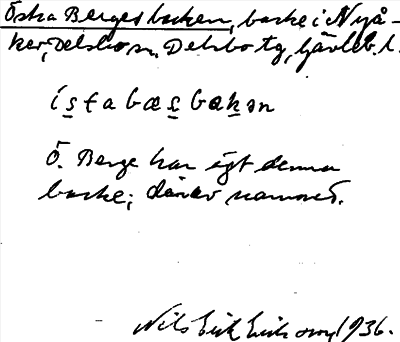 Östra Bergesbacken, backe i Nyå-
ker, Delsbo sn, Delsbo tg, Gävleb. l.
Ö. Berge har ägt denna
backe; därav namnet.
Nils Erik Eriksson, 1936.